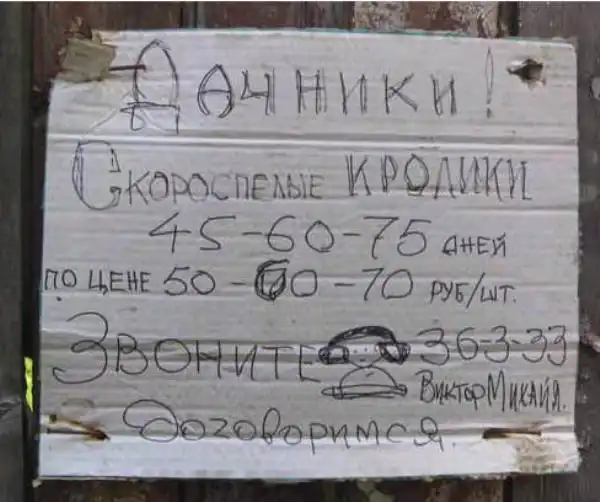 Дачники!
Скороспелые КРОЛИКИ
45-60-75 дней
по цене 50-60-70 руб/шт.
Звоните 3-6-3-33
Виктор Михайл.
Договоримся.